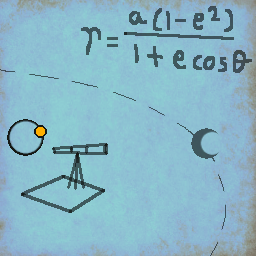 r = a(1-e²) / 1 + e cosθ